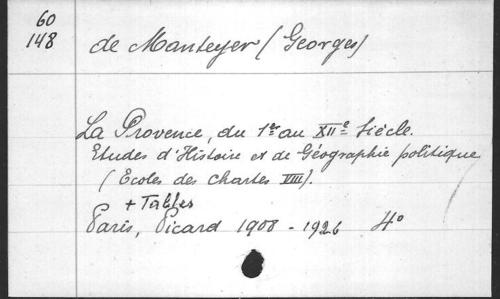 60
148
de Manteyer (Georges)
La Provence, du 1er au XIIe Siècle.
Etudes d'Histoire et de Géographie politique
(Ecoles des Chartes VIII).
+ Tables
Paris, Picard 1908 - 1926 4°